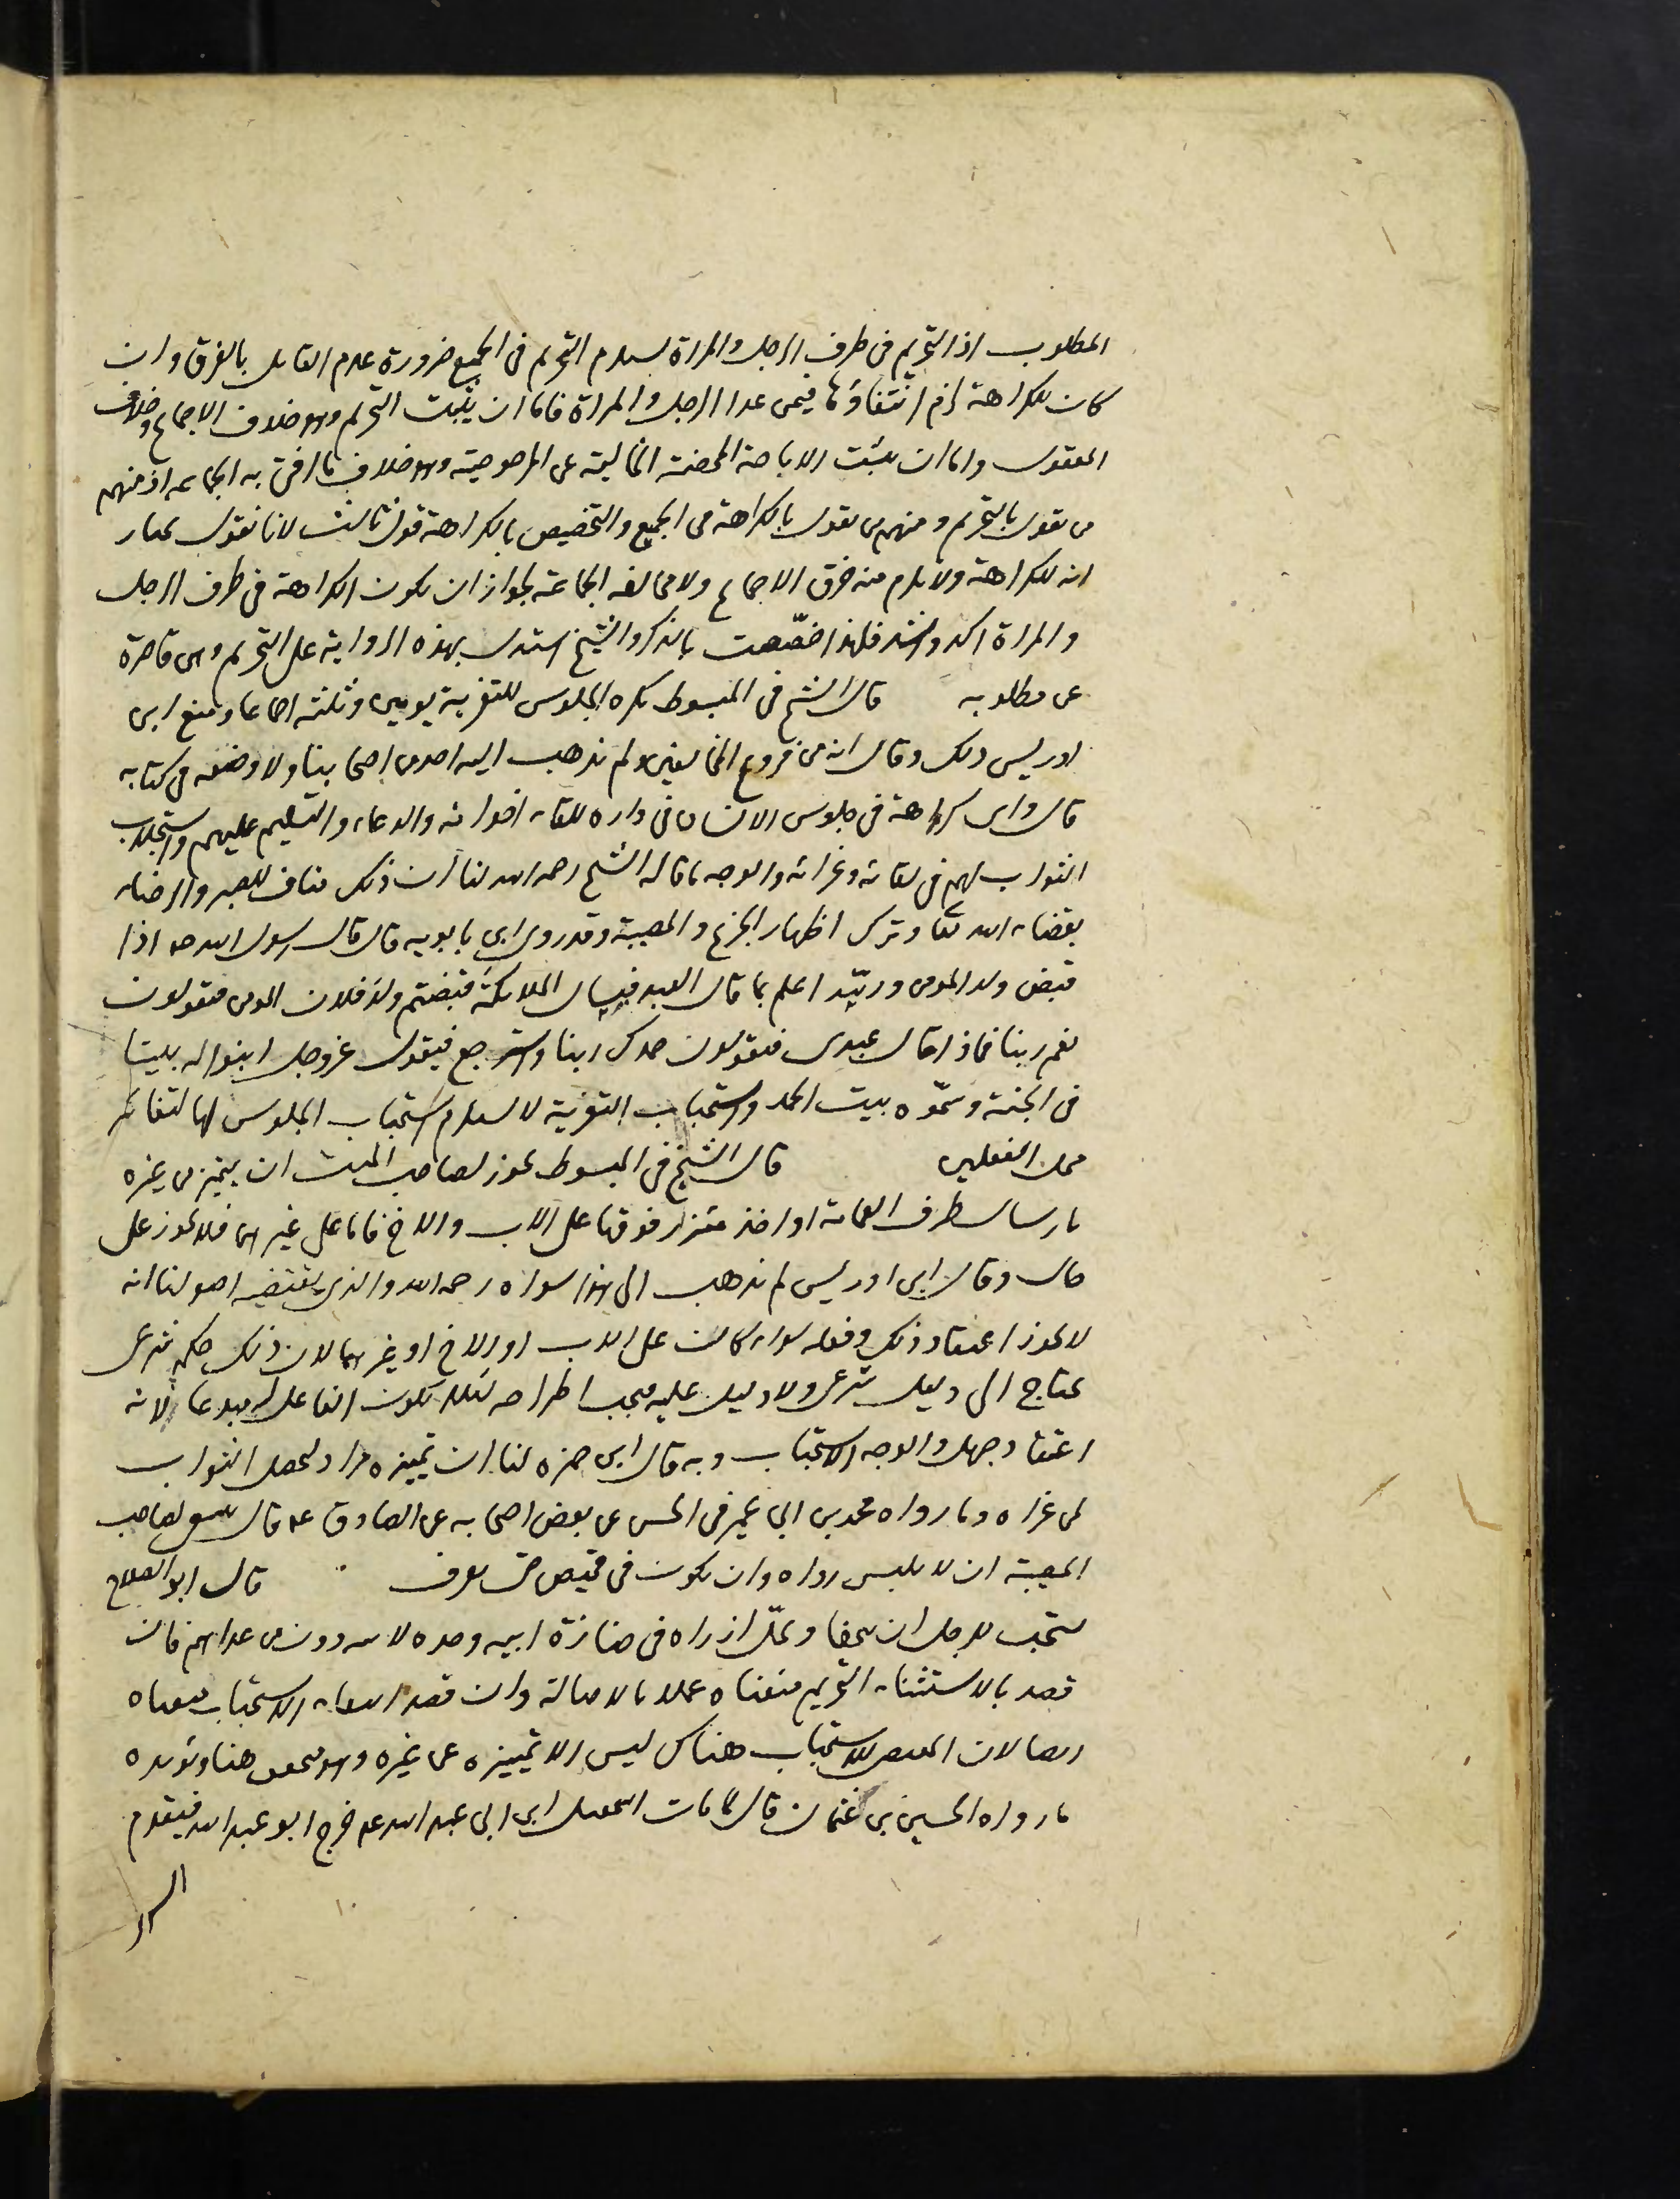 المطلوب اذ التحريم فى طرف الرجل والمراة يستلزم التحريم فى الجميع ضرورة عدم القايل بالفرق وان
كان للكراهة لزم انتفاؤها فيمن عدا الرجل والمراة فاما ان يثبت التحريم وهو خلاف الاجماع وخلاف
المعقول واما ان يثبت الاباحة المحضة الخالية عن المرجوحية وهو خلاف ما افتى به الجماعه اذ منهم
من يقول بالتحريم ومنهم من يقول بالكراهة فى الجميع والتخصيص بالكراهة قول ثالث لانا نقول نختار
انه للكراهة ولا يلزم منه خرق الاجماع ولا مخالفه الجماعة لجواز ان يكون الكراهة فى طرف الرجل
والمراة اكد واشد فلهذا خصّصت بالذكر والشيخ استدل بهذه الرواية على التحريم وهى قاصرة
عن مطلوبه قال الشيخ فى المبسوط يكره الجلوس للتعزية يومين وثلثه اجماعا ومنع ابن
ادريس ذلك وقال انه من فروع المخالفين ولم يذهب اليه احد من اصحابنا ولا وضعه فى كتابه
قال واى كراهة فى جلوس الانسان فى داره للقاء اخوانه والدعاء والتسليم عليهم واستجلاب
الثواب لهم فى لقائه وعزائه والوجه ما قاله الشيخ رحمه الله لنا ان ذلك مناف للصبر والرضاء
بقضاء الله تعا وترك اظهار الجزع والمصيبة وقد روى ابن بابويه قال قال رسول الله صه اذا
قبض ولد المومن وربّه اعلم بما قال العبد فيسال الملائكة قبضتم ولد فلان المومن فيقولون
نعم ربنا فماذا قال عبدى فيقولون حمدك ربنا واسترجع فيقول عزوجل ابنوا له بيتا
فى الجنة وسمّوه بيت الحمد واستحباب التعزية لا يستلزم استحباب الجلوس لها لتغاير
محل الفعلين قال الشيخ فى المبسوط يجوز لصاحب الميت ان يتميز من غيره
بارسال طرف العمامة او اخذ مئزر فوقها على الاب والاخ فاما على غيرهما فلا يجوز على
حال وقال ابن ادريس لم يذهب الى هذا سواه رحمه الله والذى يقتضيه اصولنا انه
لا يجوز اعتقاد ذلك وفعله سواء كانت على الاب او الاخ او غيرهما لان ذلك حكم شرعى
يحتاج الى دليل شرعى ولا دليل عليه فيجب اطراحه لئلا يكون الفاعل له مبدعا لانه
اعتقاد جهل والوجه الاستحباب وبه قال ابن حمزه لنا ان تميزه مراد ليحصل الثواب
لمن عزاه وما رواه محمد بن ابى عمير فى الحسن عن بعض اصحابه عن الصادق عه قال ينبغى لصاحب
المصيبة ان لا يلبس رداه وان يكون فى قميص حتى يعرف قال ابو الصلاح
يستحب للرجل ان يتحفا ويحلّ ازراه فى جنازة ابيه وجده لابيه دون من عداهم فان
قصد بالاستثناء التحريم منعناه عملا بالاصالة وان قصد انتفاء الاستحباب منعناه
ايضا لان المقتضى للاستحباب هناك ليس الا تمييزه عن غيره وهو متحقق هنا ويؤيده
ما رواه الحسين بن عثمان قال لما مات اسمعيل ابن ابى عبد الله عه خرج ابو عبد الله فيقدم
السرير